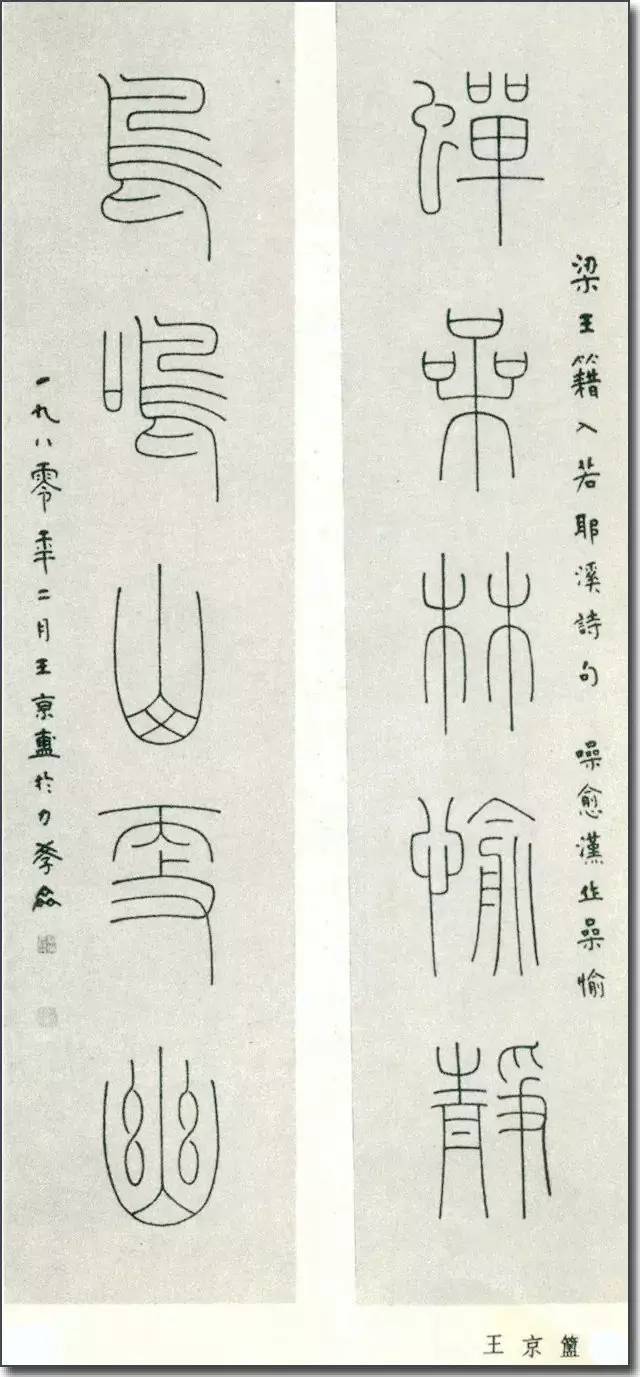 梁王籍入若耶溪詩句 噪愈漢作喿愉
蟬喿林愉靜
鳥鳴山更幽
一九八零年二月王京盙於力
王京簠